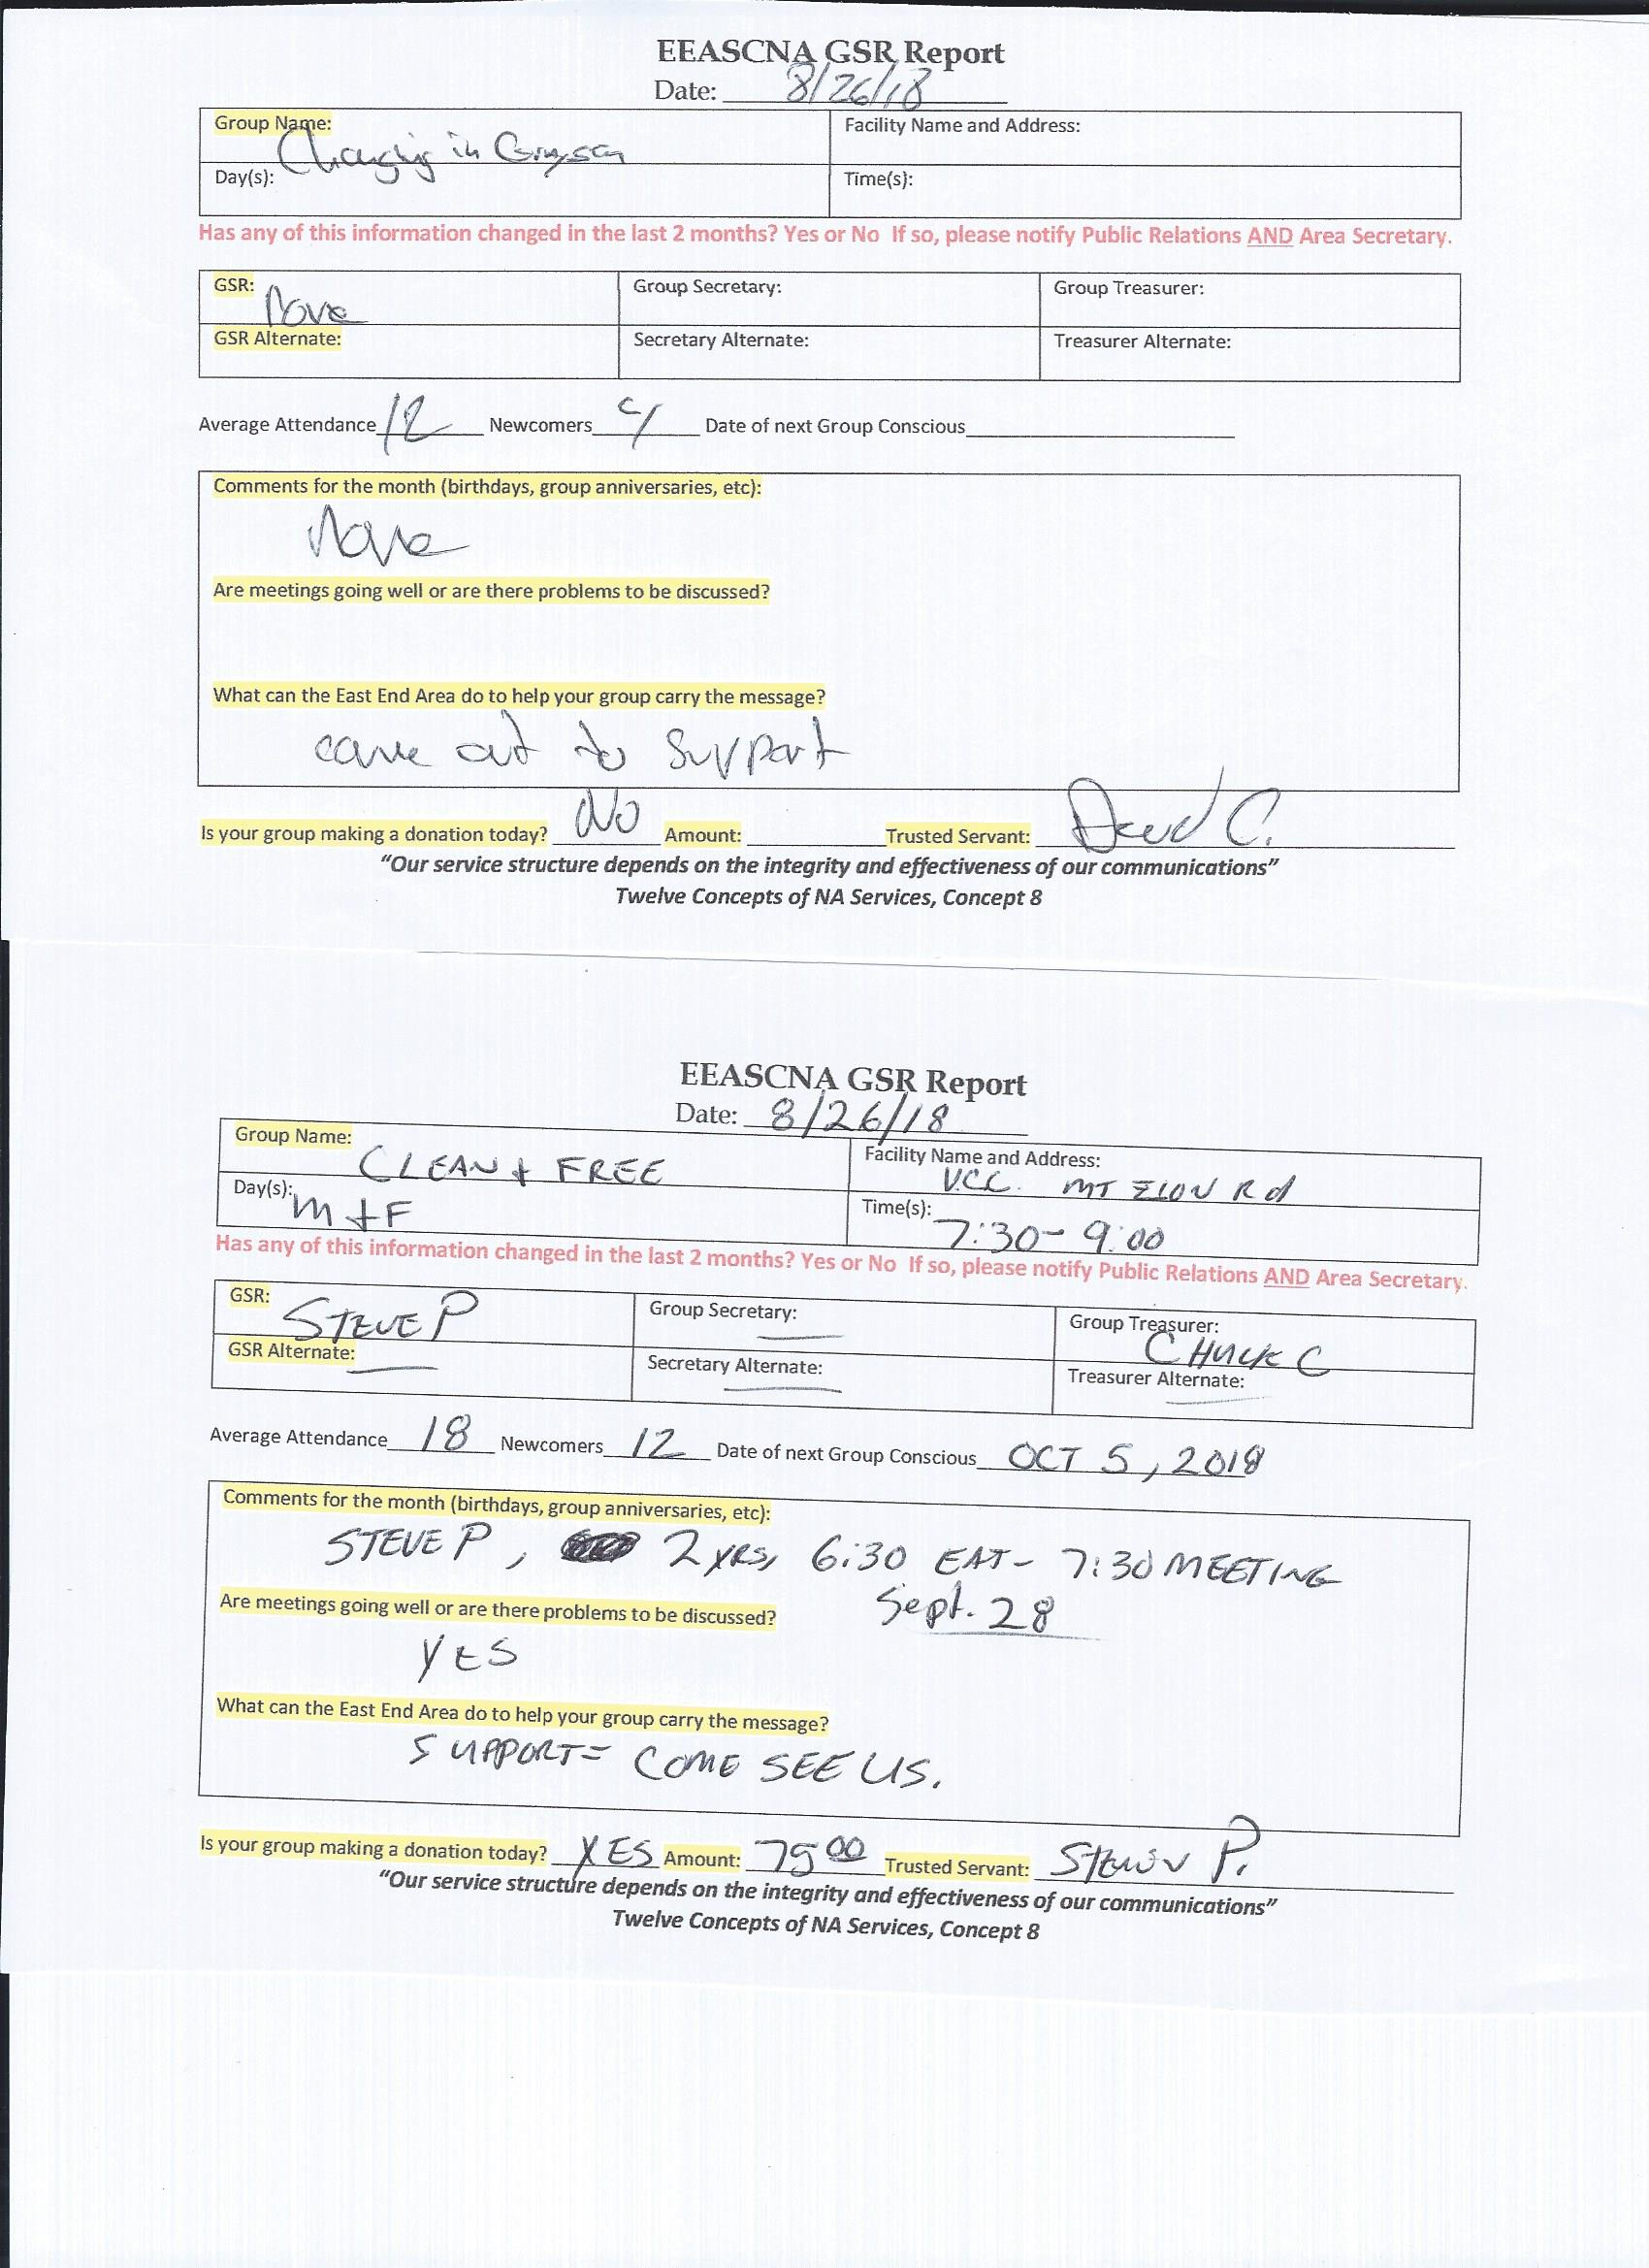 EEASCNA GSR Report
Date: 8/26/18
Group Name: Changing in Grayson
Facility Name and Address:
Day(s):
Time(s):
Has any of this information changed in the last 2 months? Yes or No If so, please notify Public Relations AND Area Secretary.
GSR: None
Group Secretary:
Group Treasurer:
GSR Alternate:
Secretary Alternate:
Treasurer Alternate:
Average Attendance 12 Newcomers 4 Date of next Group Conscious
Comments for the month (birthdays, group anniversaries, etc):
None
Are meetings going well or are there problems to be discussed?
What can the East End Area do to help your group carry the message?
come out to support
Is your group making a donation today? No Amount: Trusted Servant: C.
“Our service structure depends on the integrity and effectiveness of our communications”
Twelve Concepts of NA Services, Concept 8
EEASCNA GSR Report
Date: 8/26/18
Group Name: CLEAN + FREE
Facility Name and Address: V.C.C. MT ZION Rd
Day(s): M + F
Time(s): 7:30 - 9:00
Has any of this information changed in the last 2 months? Yes or No If so, please notify Public Relations AND Area Secretary.
GSR: STEVE P
Group Secretary:
Group Treasurer: CHUCK C
GSR Alternate:
Secretary Alternate:
Treasurer Alternate:
Average Attendance 18 Newcomers 12 Date of next Group Conscious OCT 5, 2018
Comments for the month (birthdays, group anniversaries, etc):
STEVE P, 2 YRS, 6:30 EAT - 7:30 MEETING
Sept. 28
Are meetings going well or are there problems to be discussed?
YES
What can the East End Area do to help your group carry the message?
SUPPORT = COME SEE US.
Is your group making a donation today? YES Amount: 75 00 Trusted Servant: P.
“Our service structure depends on the integrity and effectiveness of our communications”
Twelve Concepts of NA Services, Concept 8